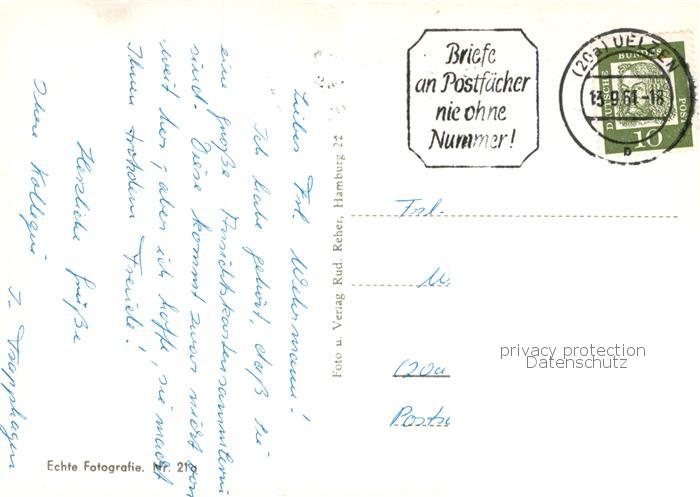 Liebes Frl. Wehrmann!
Ich habe gehört, daß Sie
eine große Ansichtskartensammlerin
sind. Diese kommt zwar nicht von
weit her, aber ich hoffe, sie macht
Ihnen trotzdem Freude!
Herzliche Grüße
Ihre Kollegin
I. Trapphagen
Echte Fotografie. Nr. 21
Foto u. Verlag Rud. Reher, Hamburg 22
Briefe
an Postfächer
nie ohne
Nummer!
(20a) UELZEN
13.9.61-18
b
DEUTSCHE
BUNDES
POST
10
Frl.
W
(20a
Posts
privacy protection
Datenschutz